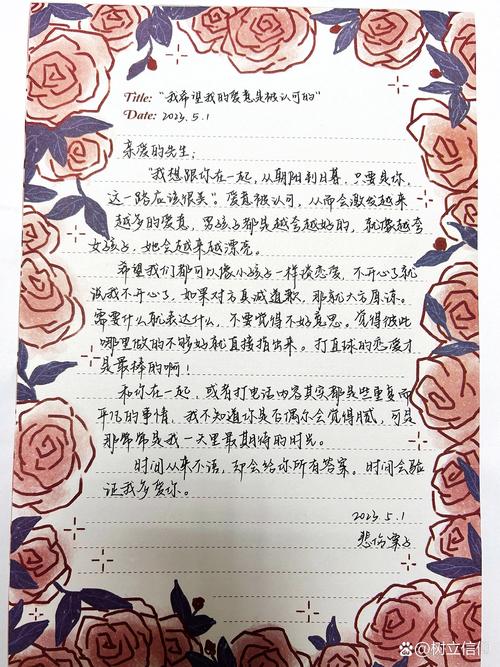 Title: "我希望我的爱意是被认可的"
Date: 2023.5.1
亲爱的先生:
"我想跟你在一起,从朝阳到日暮,只要是你,
这一路应该很美"。爱意被认可,从而会激发越来
越多的爱意,男孩子都是越夸越好的,就像越夸
女孩子,她会越来越漂亮。
希望我们都可以像小孩子一样谈恋爱,不开心了就
说我不开心了,如果对方真诚道歉,那就大方原谅。
需要什么就表达什么,不要觉得不好意思。觉得彼此
哪里做的不够好就直接指出来。打直球的恋爱才
是最棒的啊!
和你在一起,或者打电话内容其实都是些重复而
平凡的事情,我不知道你是否偶尔会觉得腻,可是
那常常是我一天里最期待的时光。
时间从来不语,却会给你所有答案。时间会验
证我多爱你。
2023.5.1
悲伤寡
@树立信们